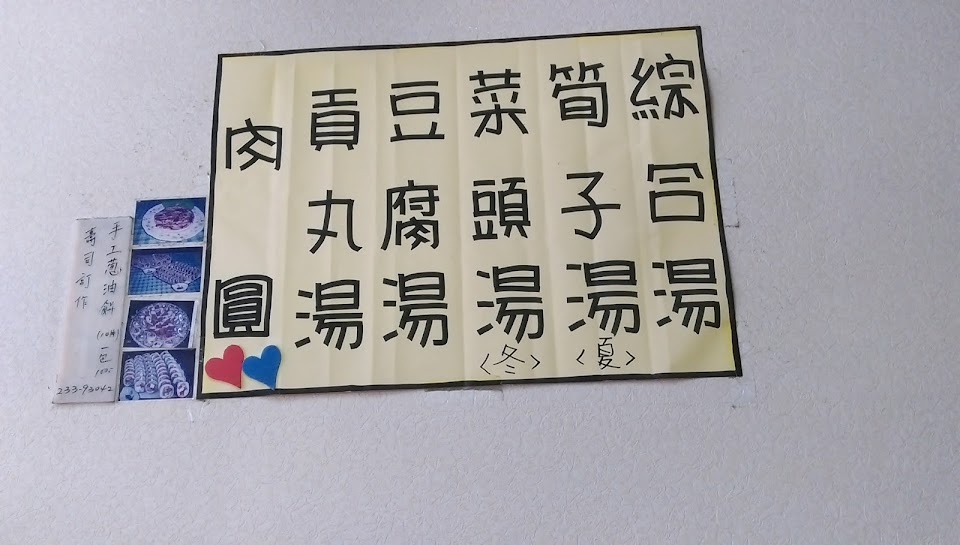 綜合湯
筍子湯
〈夏〉
菜頭湯
〈冬〉
豆腐湯
貢丸湯
肉圓
手工蔥油餅(10片)一包
壽司訂作
233-93042